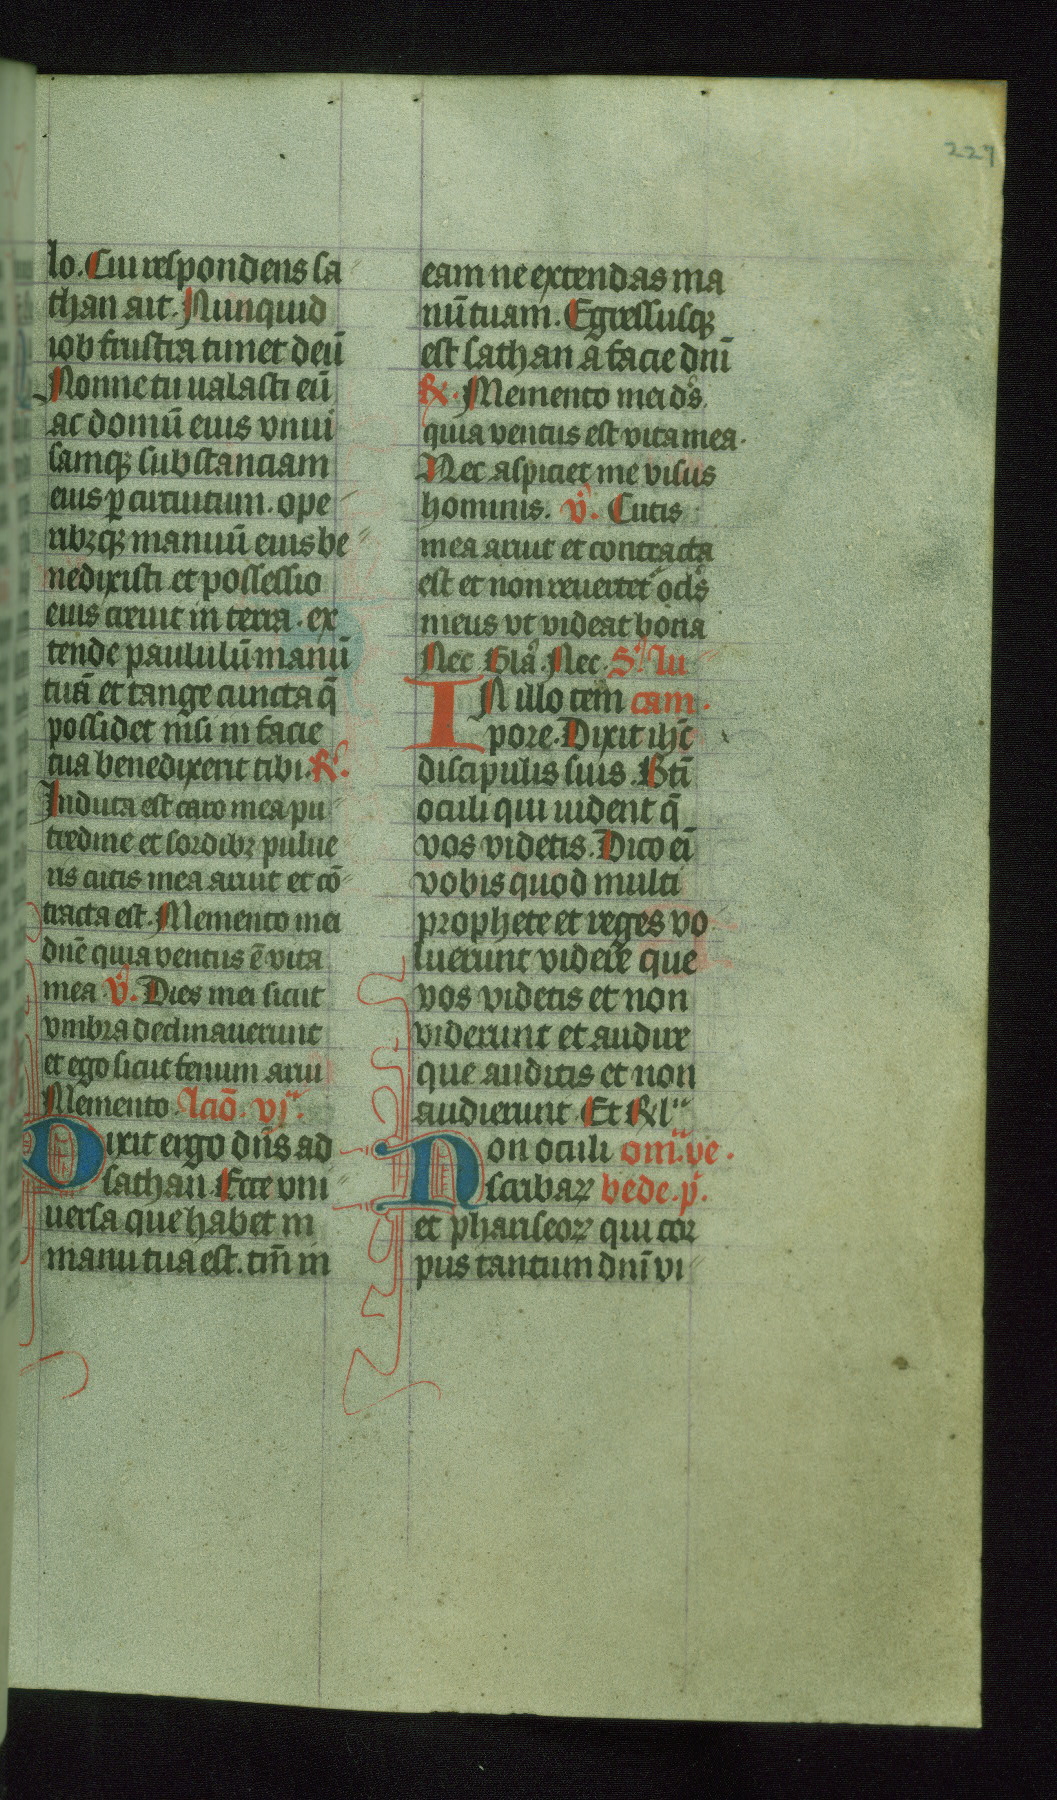 227
lo. Cui respondens sa
than ait. Nunquid
iob frustra timet deū
Nonne tu ualasti eū
ac domū eius vniu
samqꝫ substanciam
eius ꝑ circuitum. ope
ribꝫqꝫ manuū eius be
nedixisti et possessio
eius creuit in terra. ex
tende paululū manū
tuā et tange cuncta q̄
possidet nisi in facie
tua benedixerit tibi. R̸.
Induta est caro mea pu
tredine et sordibꝫ pulue
ris cutis mea aruit et cō
tracta est. Memento mei
dnē quia ventus ē vita
mea. V̸. Dies mei sicut
vmbra declinauerunt
et ego sicut fenum arui
Memento. lcıō. vj.
Dixit ergo dn̄s ad
sathan. Ecce vni
uersa que habet in
manu tua est. tm̄ in
eam ne extendas ma
nū tuam. Egressusqꝫ
est sathan a facie dnī
R̸. Memento mei ds̄.
quia ventus est vita mea.
Nec aspiciet me visus
hominis. V̸. Cutis
mea aruit et contracta
est et non reuertet᷑ ocl̄s
meus vt videat bona
Nec Glā. Nec. S. lu
IN illo tem cam.
pore. Dixit ihc̄
discipulis suis. Btī
oculi qui uident q̄
vos videtis. Dico eī
vobis quod multi
prophete et reges vo
luerunt videre que
vos videtis et non
viderunt et audire
que auditis et non
audierunt. Et Rl̄
Non oculi om̄. ve.
scribaꝝ bede. p̄.
et phariseoꝝ qui cor
pus tantum dnī vi